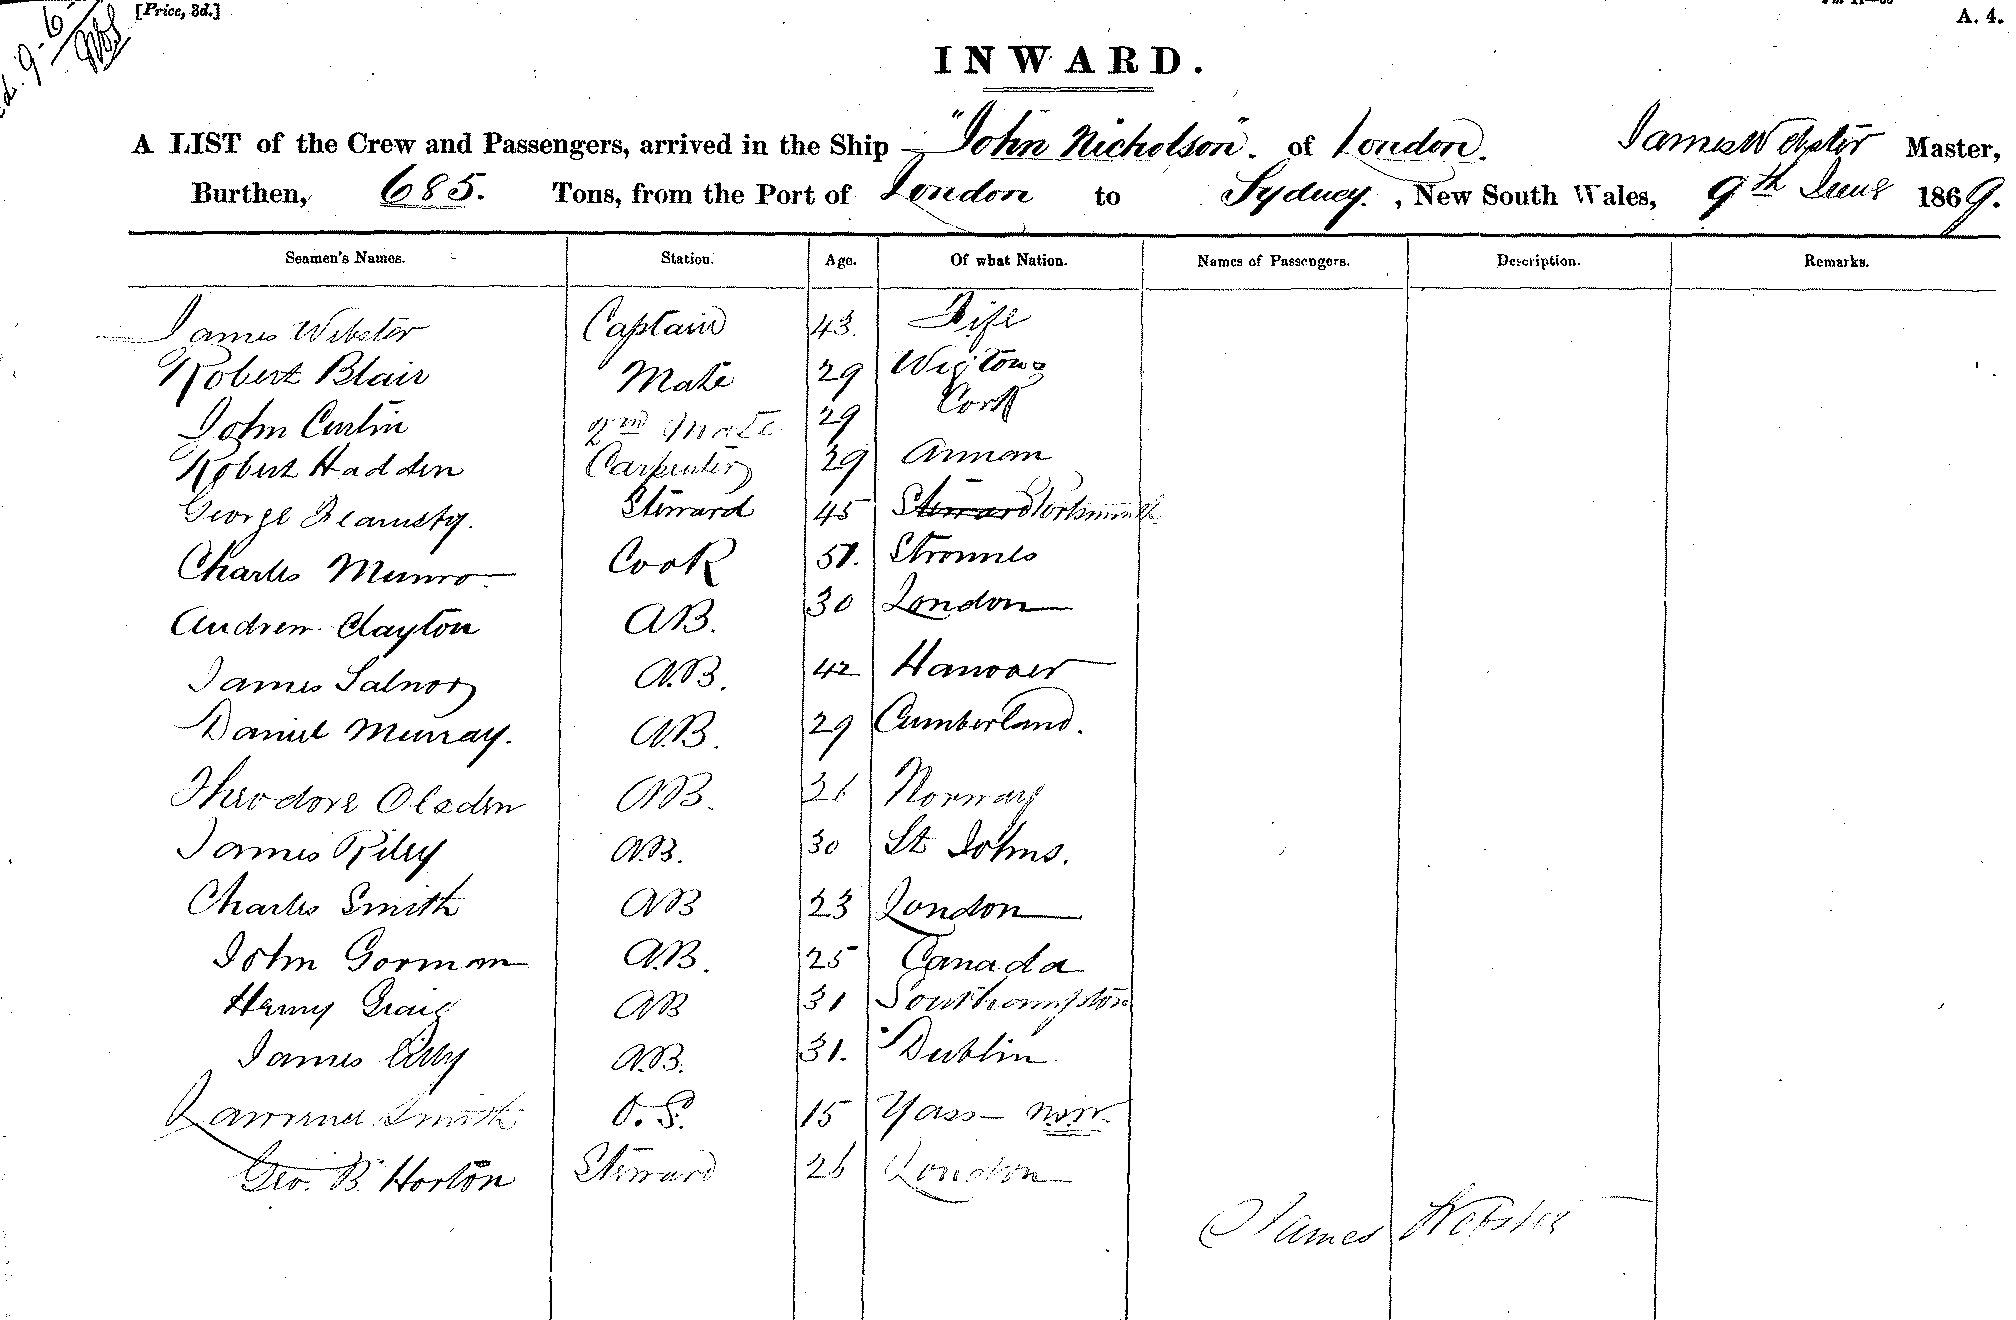 [Price, 3d.]
A. 4.
INWARD.
A LIST of the Crew and Passengers, arrived in the Ship "John Nicholson". of London. James Webster Master,
Burthen, 685. Tons, from the Port of London to Sydney. , New South Wales, 9th June 1869.
Seamen's Names. Station. Age. Of what Nation. Names of Passengers. Description. Remarks.
James Webster Captain 43. Fife
Robert Blair Mate 29 Wigtown
John Curlin 2nd Mate 29 Cork
Robert Hadden Carpenter 29 Annan
George Steward 45 Steward Portsmouth
Charles Munro Cook 51. Stromnes
Andrew Clayton AB. 30 London
James A.B. 42 Hanover
Daniel Murray. A.B. 29 Cumberland.
Theodore Olsden AB. 26 Norway
James Riley A.B. 30 St Johns.
Charles Smith AB 23 London
John Gorman A.B. 25 Canada
Henry Craig AB 31 Southampton
James A.B. 31. Dublin
Lawrence Smith O.S. 15 Yass
Geo. B. Horton Steward 26 London
James Webster